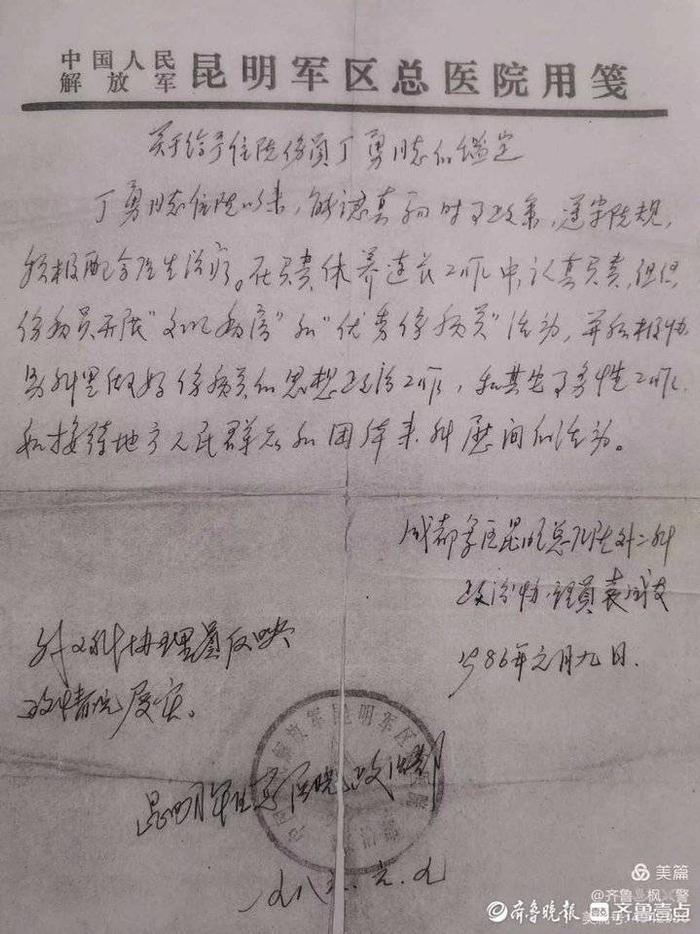 中国人民
解放军 昆明军区总医院用笺
关于给予住院伤员丁勇同志的鉴定
丁勇同志住院以来，能认真执行政策，遵守院规，
积极配合医生治疗。在负责休养连长工作中，认真负责，组织
伤病员开展“文明病房”和“优秀伤病员”活动，并积极协
助科里做好伤病员的思想政治工作，和其它事务性工作
和接待地方人民群众和团体来科慰问的活动。
成都军区昆明总医院外二科
政治协理員袁
1986年元月九日.
外二科协理员反映
的情况属实。
昆明军区总医院政治部
一九八六.元.九
中国人民解放军昆明军区总医院
政治部
美篇
@齐鲁 枫 警
齐鲁晚报 齐鲁壹点
美篇号